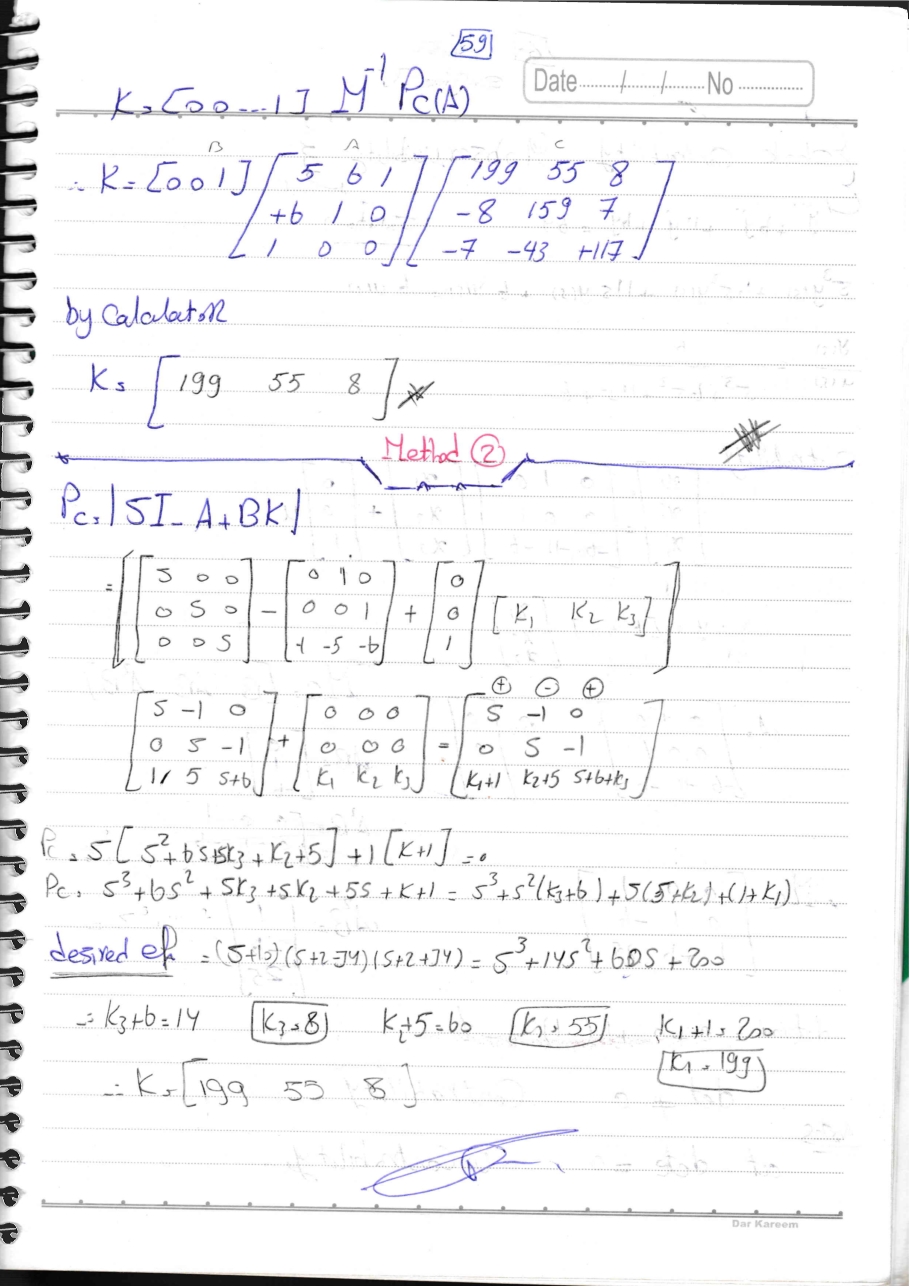 59
Date ......../......../........ No ................
K = [0 0 ... 1] M⁻¹ Pc(A)
B A C
∴ K = [0 0 1] [ 5 6 1 ] [ 199 55 8 ]
+6 1 0 -8 159 7
1 0 0 -7 -43 +117
by Calculator
K = [ 199 55 8 ]
Method ②
Pc = |SI - A + BK|
= | [ S 0 0 ] - [ 0 1 0 ] + [ 0 ] [ K₁ K₂ K₃ ] |
0 S 0 0 0 1 0
0 0 S -1 -5 -6 1
⊕ ⊖ ⊕
[ S -1 0 ] + [ 0 0 0 ] = [ S -1 0 ]
0 S -1 0 0 0 0 S -1
1 5 S+6 K₁ K₂ K₃ K₁+1 K₂+5 S+6+K₃
Pc = S[S²+6S+SK₃+K₂+5]+1[K+1] = 0
Pc = S³+6S²+SK₃+SK₂+5S+K+1 = S³+S²(K₃+6)+S(5+K₂)+(1+K₁)
desired = (S+10)(S+2-J4)(S+2+J4) = S³+14S²+60S+200
∴ K₃+6=14 K₃=8 K₂+5=60 K₂=55 K₁+1=200
K₁=199
∴ K = [199 55 8]
Dar Kareem